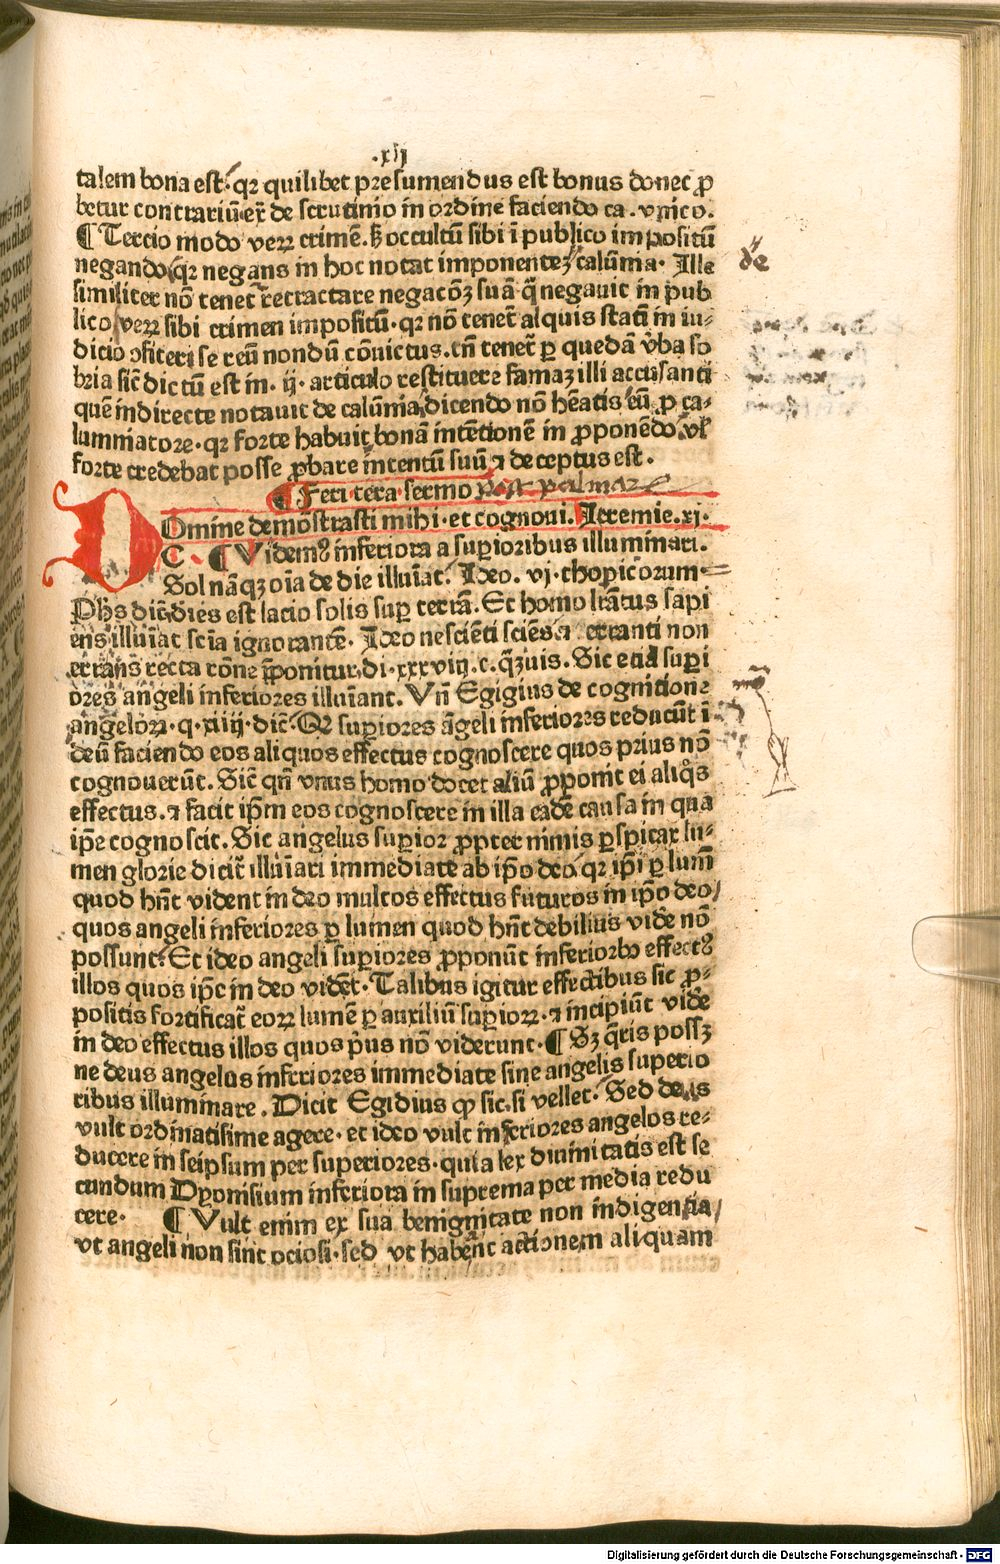 .xij
talem bona est. qꝛ quilibet presumendus est bonus donec ꝓ
betur contrariū. exͬ de scrutinio in ordine faciendo ca. vnico.
¶ Tercio modo veꝝ crimē. sꝫ occultū sibi ī publico impositū
negando, qꝛ negans in hoc notat imponentē calūnia. Ille
similiter nō tenet᷑ retractare negacōꝫ suā q̄ negauit in pub
lico, veꝝ sibi crimen impositū. qꝛ nō tenet᷑ alquis statī in iu⸗
dicio ɔfiteri se reū nondū cōuictus. tn̄ tenet᷑ ꝑ quedā v̓ba so
bria sic̄ dictū est in. ij. articulo restituere famaꝫ illi accusanti
quē indirecte notauit de calūnia, dicendo nō hēatis eū ꝓ ca⸗
lumniatore. qꝛ forte habuit bonā intētionē in ꝓponēdo. vl̓
forte credebat posse ꝓbare intentū suū ⁊ deceptus est.
¶ Feri tera sermo post palmaꝝ
DOmine demōstrasti mihi. et cognoui. Ieremie. xj.
C. ¶ Videmꝰ inferiora a suꝑioribus illuminari.
Sol nāqꝫ oīa de die illuīat. Ideo. vj. thopicorum
Ph̄s dic̄. dies est lacio solis suꝑ terrā. Et homo lrātus sapi
ens illuīat scīa ignorantē. Ideo nesciēti sciēs ⁊ erranti non
errans recta rōne p̄ponitur. di. xxxviij. c. qͣꝫuis. Sic etiā suꝑi
ores angeli inferiores illuīant. Vn̄ Egigius de cognitione
angeloꝝ. q. xiiij. dic̄. Qꝛ suꝑiores āgeli inferiores reducūt ī
deū faciendo eos aliquos effectus cognoscere quos prius nō
cognouerūt. Sic̄ qn̄ vnus homo docet aliū ꝓponit ei aliqͦs
effectus. ⁊ facit ip̄m eos cognoscere in illa eadē causa in qua
ip̄e cognoscit. Sic angelus suꝑior ꝓpter nimis ꝑspicax lu⸗
men glorie dicit᷑ illuīari immediate ab ip̄o deo. qꝛ ip̄i ꝑ lumē
quod hn̄t vident in deo multos effectus futuros in ip̄o deo/
quos angeli inferiores ꝑ lumen quod hn̄t debilius vidē nō
possunt. Et ideo angeli suꝑiores ꝓponūt inferioribꝰ effectꝰ
illos quos ip̄e in deo vidēt. Talibus igitur effectibus sic ꝓ⸗
positis fortificat᷑ eoꝝ lumē ꝑ auxiliū suꝑioꝝ. ⁊ incipiūt vidē
in deo effectus illos quos pͥus nō viderunt. ¶ Sꝫ q̄ris possꝫ
ne deus angelos inferiores immediate sine angelis superio
ribus illuminare. Dicit Egidius ꝙ sic. si vellet. Sed deus
vult ordinatisime agere. et ideo vult inferiores angelos re⸗
ducere in seipsum per superiores. quia lex diuinitatis est se
cundum Dyonisium inferiora in suprema per media redu
cere. ¶ Vult enim ex sua benignitate non indigentia/
vt angeli non sint ociosi. sed vt habeāt actionem aliquam
de
Digitalisierung gefördert durch die Deutsche Forschungsgemeinschaft - DFG